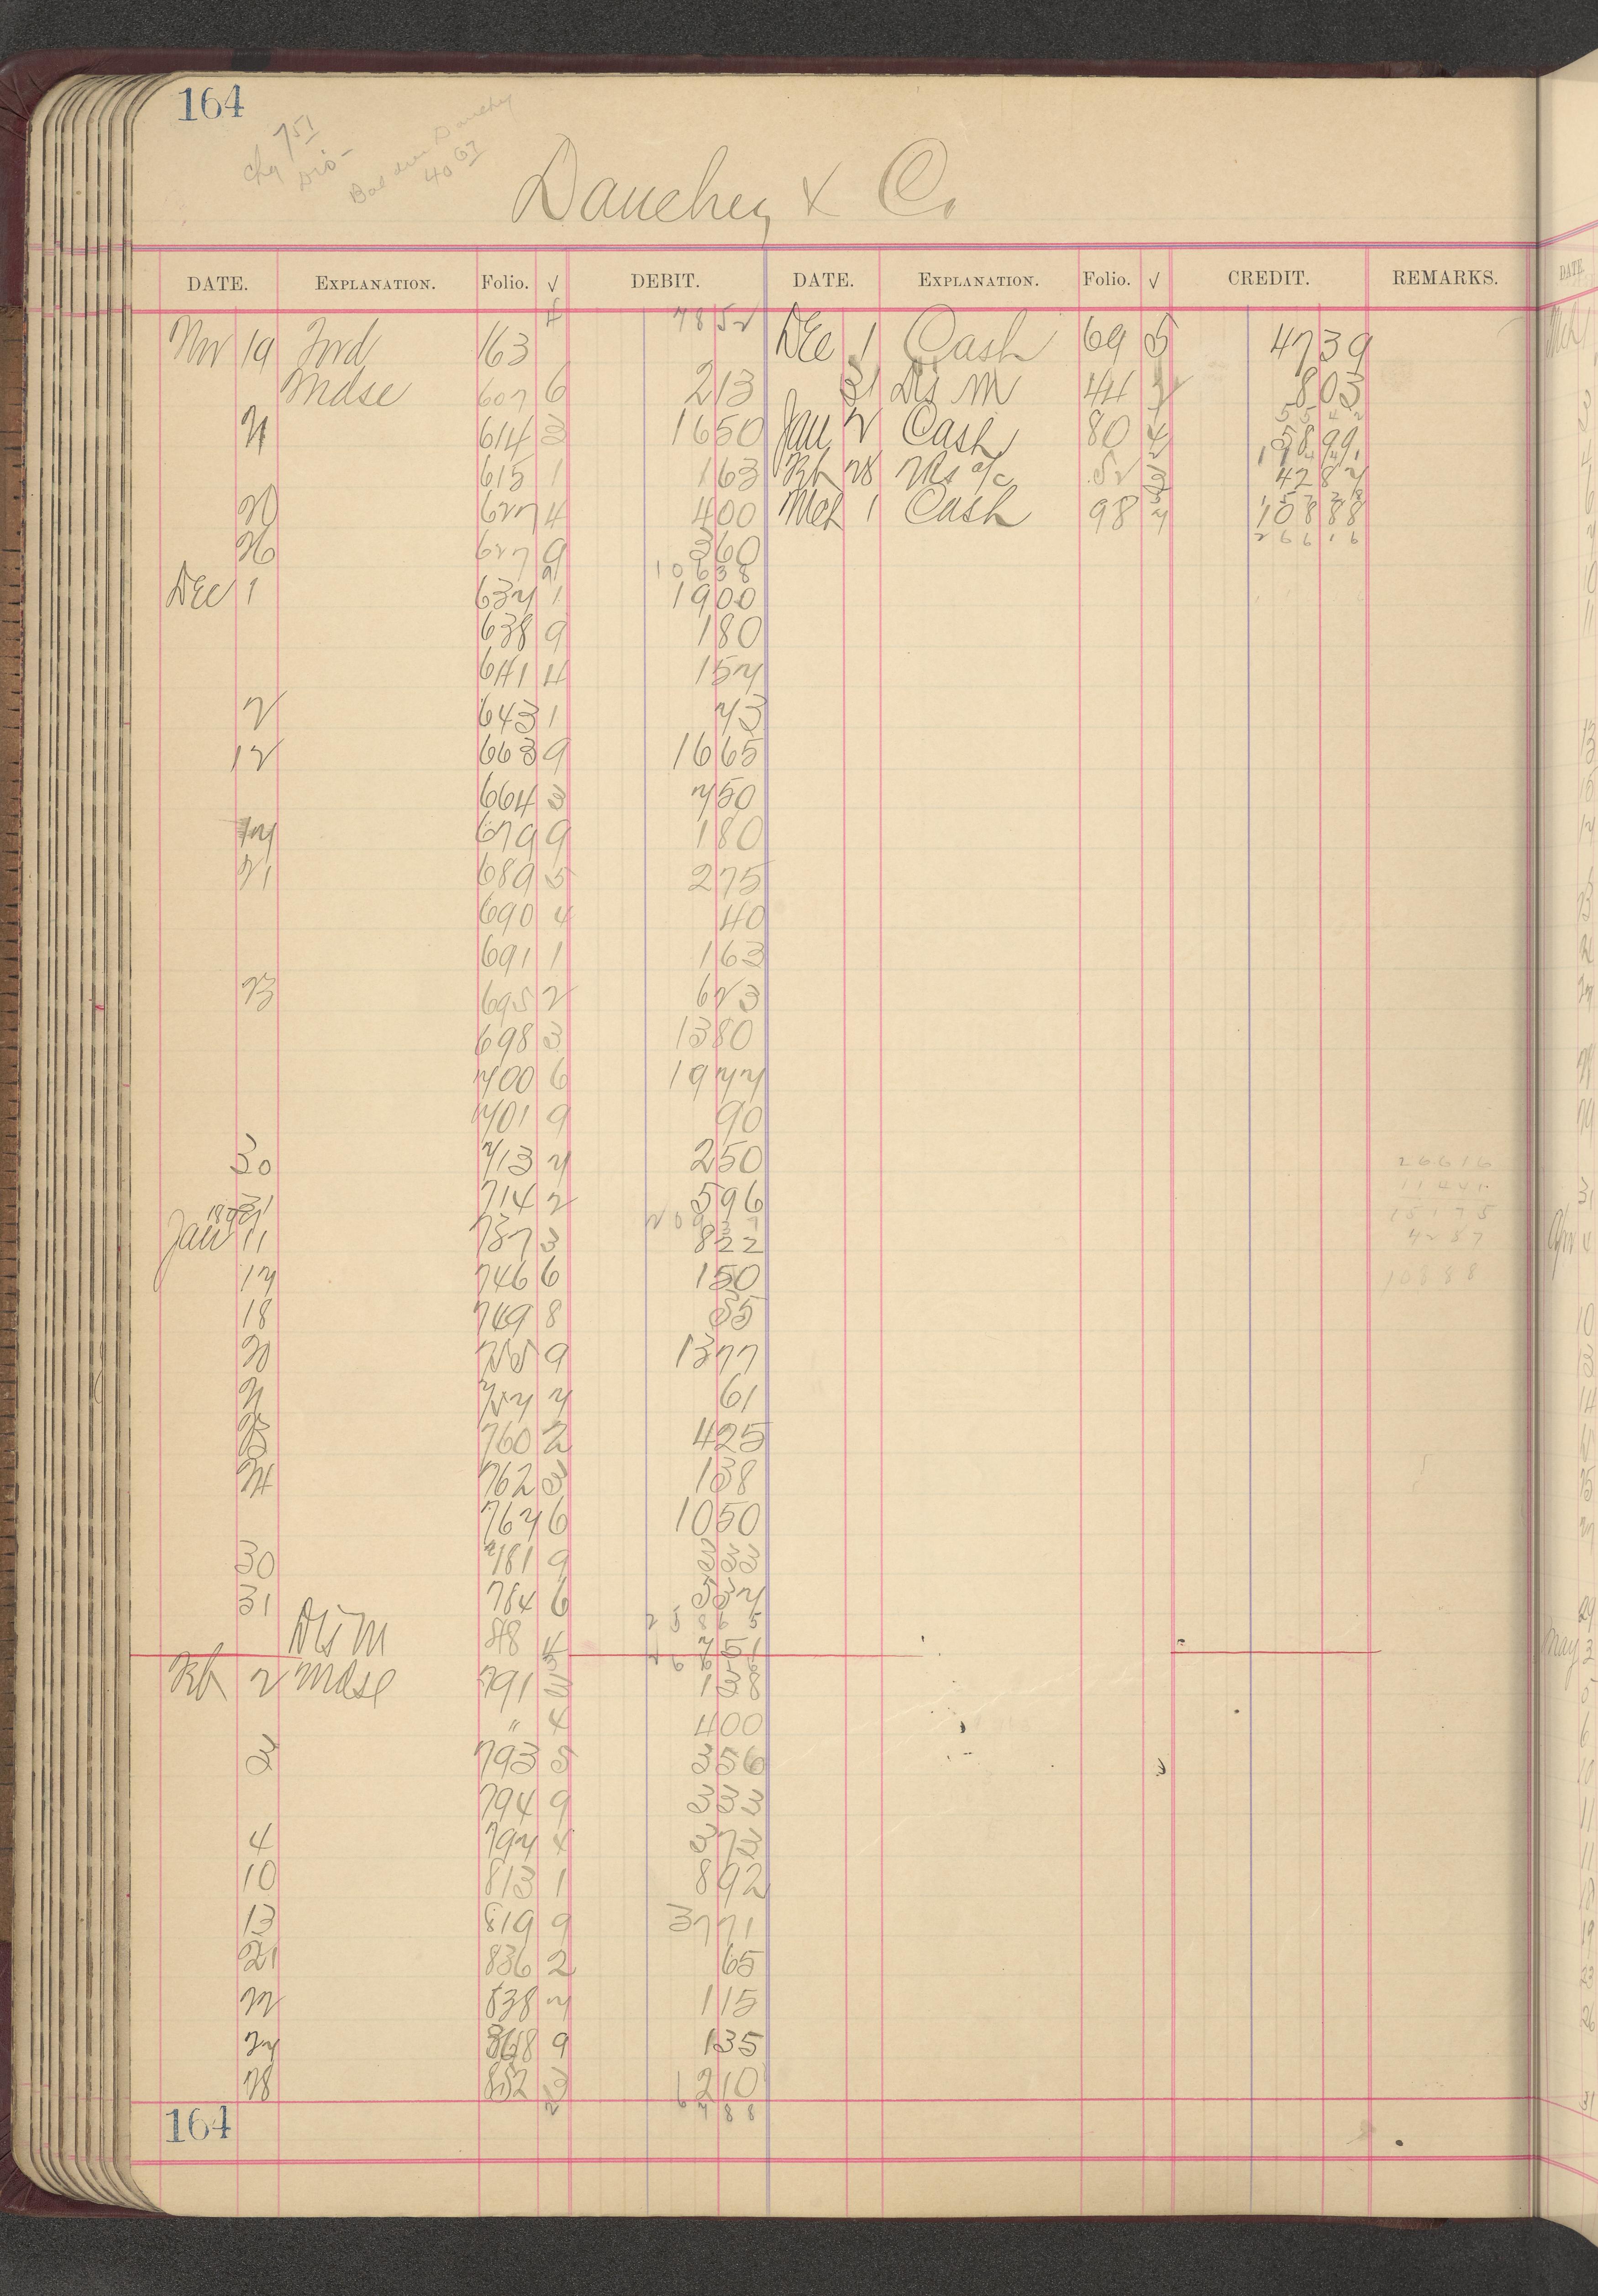 164
Chg 751
Dis-
Bal due Dauchy
40 67
Dauchey & Co
DATE. EXPLANATION. Folio. √ DEBIT. DATE. EXPLANATION. Folio. √ CREDIT. REMARKS.
Nov 19 Ford 163 4 78 52 Dec 1 Cash 69 5 47 39
Mdse 607 6 2 13 31 Ds M 44 8 03
55 42
21 614 3 16 50 Jan 2 Cash 80 4 58 99
615 1 1 63 Feb 28 Ds a/c 52 42 87
20 627 4 4 00 Mch 1 Cash 98 7 108 88
266 16
26 627 9 3 60
106 38
Dec 1 637 1 19 00
638 9 1 80
641 4 1 57
2 643 1 73
12 663 9 16 65
664 3 7 50
17 679 9 1 80
21 689 5 2 75
690 4 40
691 1 1 63
23 695 2 6 23
698 3 13 80
700 6 19 77
701 9 90
30 713 7 2 50 266 16
31 714 2 5 96 114 41
209 37 151 75
Jan 11 737 3 8 22 42 87
17 746 6 1 50 108 88
18 749 8 35
20 9 13 77
21 7 61
23 760 2 4 25
24 762 3 1 38
767 6 10 50
30 781 9 3 33
31 784 6 5 37
258 65
Dis M 48 4 7 51
266 16
Feb 2 Mdse 791 3 1 38
" 4 4 00
3 793 5 3 56
794 9 3 33
4 797 4 3 73
10 813 1 8 92
13 819 9 37 71
21 836 2 65
22 838 7 1 15
27 848 9 1 35
28 852 3 2 10
67 88
164